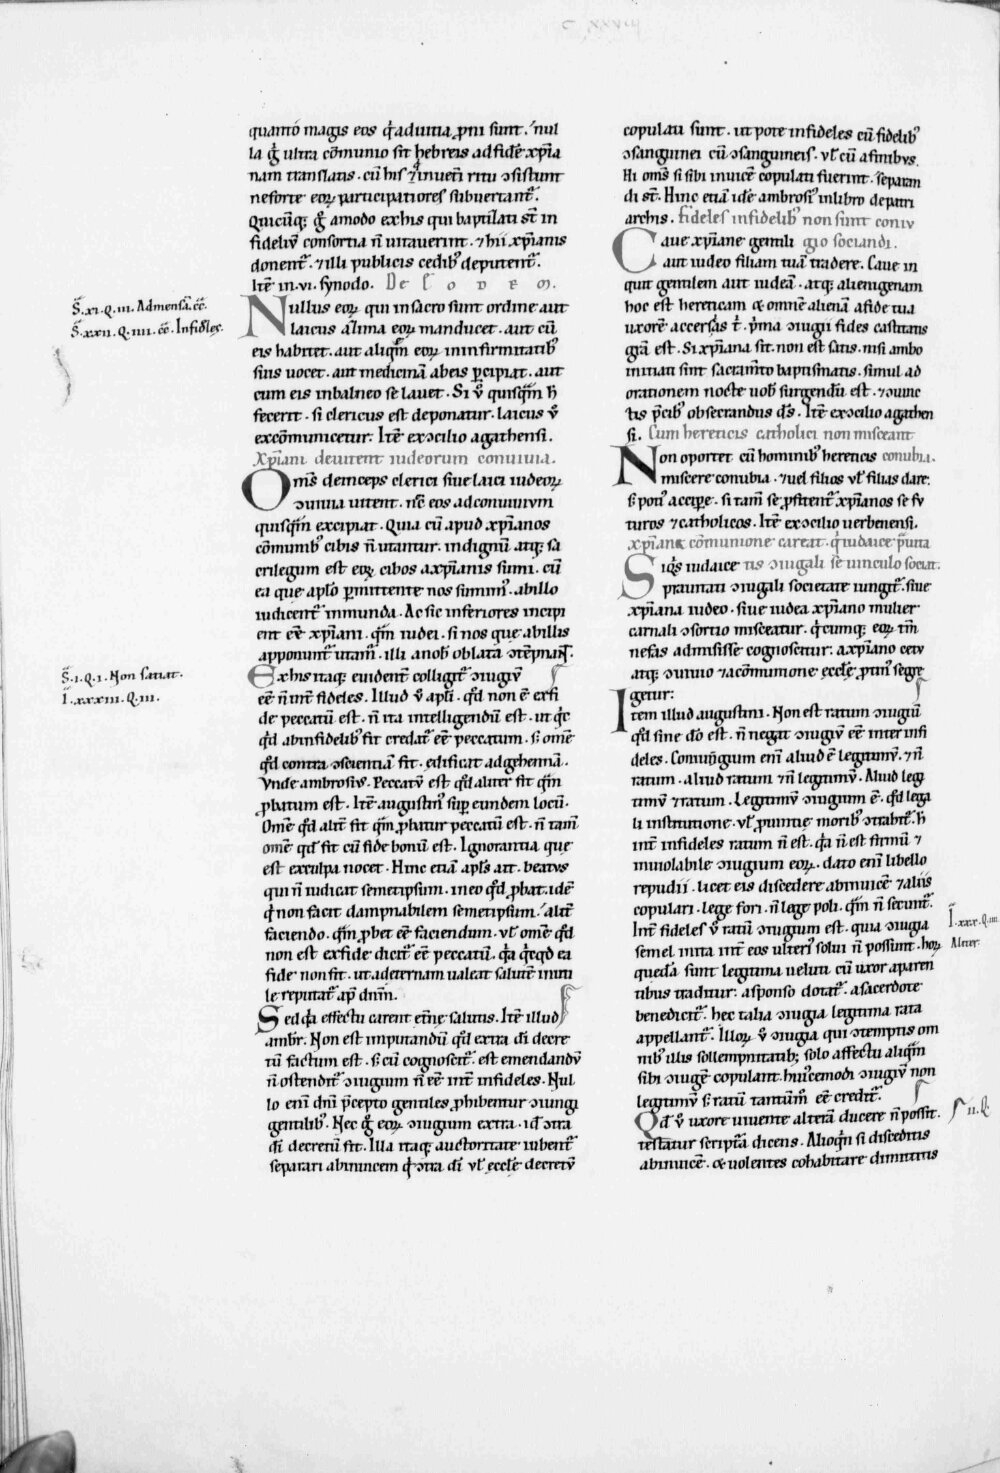 quanto magis eos q̄ adulti a proni sunt. nul
la g̊ ultra cōmunio sit hebreis ad fidē xp̄ia
nam translatis. cū his q̇ in ueteri ritu ɔsistunt
ne forte eoꝝ participatione subuertant᷒.
Quicūq; g̊ amodo ex his qui baptizati st̄ in
fideliū consortia n̄ uitauerint. ⁊ hii xp̄ianis
donent᷒. ⁊ illi publicis cedib᷒ deputent᷒.
Itē in .vi. synodo. De eodem.
Nullus eoꝝ qui in sacro sunt ordine aut
laicus azima eoꝝ manducet. aut cū
eis habitet. aut aliquē eoꝝ in infirmitatib᷒
suis uocet. aut medicinā ab eis percipiat. aut
cum eis in balneo se lauet. Si ū quisquā h̄
fecerit. si clericus est deponatur. laicus ū
excōmunicetur. Itē ex ɔcilio agathensi.
Xp̄iani deuitent iudeorum conuiuia.
Omēs deinceps clerici siue laici iudeoꝝ
ɔuiuia uitent. nec eos ad conuiuium
quisquā excipiat. Quia cū apud xp̄ianos
cōmunib᷒ cibis n̄ utantur. indignū atq; sa
crilegum est eoꝝ cibos a xp̄ianis sumi. cū
ea que aplō permittente nos sumim᷒. ab illis
iudicent᷒ inmunda. Ac sic inferiores incipi
ent ēē xp̄iani. quā iudei. si nos que ab illis
apponunt᷒ utam᷒. illi a nob̄ oblata ɔtempnant.
Ex his itaq; euident᷒ colligit᷒ ɔiugiū
ēē n̄ int̄ fideles. Illud ū apl̄i. qd̄ non ē ex fi
de peccatū est. n̄ ita intelligendū est. ut q̇cq̇
qd̄ ab infidelib᷒ fit credat᷒ ēē peccatum. s; omē
qd̄ contra ɔscientiā fit. edificat ad gehennā.
Vnde ambrosius. Peccatū est qd̄ aliter fit quā
probatum est. Itē augustin᷒ super eundem locū.
Omē qd̄ alit̄ fit quā probatur peccatū est. n̄ tam̄
omē qd̄ fit cū fide bonū est. Ignorantia que
est ex culpa nocet. Hinc etiā apl̄s ait. beatus
qui n̄ iudicat semetipsum. in eo qd̄ probat. idē
q̇ non facit dampnabilem semetipsum. alit̄
faciendo. quā probet ēē faciendum. ul̄ omē qd̄
non est ex fide dicit᷒ ēē peccatū. q̇a q̇cqd̄ ea
fide non fit. ut ad eternam ualeat salutē inuti
le reputat᷒ apd̄ dn̄m.
Sed q̇a effectu carent etn̄e salutis. Itē illud
ambr̄. Non est imputandū qd̄ extra di decre
tū factum est. s; cū cognoscit᷒. est emendandū
n̄ ostendit᷒ ɔiugium n̄ ēē int̄ infideles. Nul
lo enī dn̄i p̄cepto gentiles prohibentur ɔiungi
gentilib᷒. Nec g̊ eoꝝ ɔiugium extra. id ɔtra
di decretū fit. Illa itaq; auctoritate iubent᷒
separari ab inuicem q̇ ɔtra di ul̄ eccl̄e decretū
S̄. xi. q. iii. Ad mensā. c̄c̄.
S̄. xxii. q. iiii. c̄c̄. Infidlēc.
S̄. i. q. i. Non satiat.
I. xxxiii. Q. iii.
copulati sunt. ut pote infideles cū fidelib᷒
ɔsanguinei cū ɔsanguineis. ul̄ cū afinibus.
Hi omēs si sibi inuicē copulati fuerint. separan
di st̄. Hinc etiā idē ambrosi᷒ in libro de patri
archis. Fideles infidelib᷒ non sunt coniu
Caue xp̄iane gentili gio sociandi.
aut iudeo filiam tuā tradere. Caue in
quit gentilem aut iudeā. atq; alienigenam
hoc est hereticam ⁊ omnē alienā a fide tua
uxorē accersas t̄. prima ɔiugii fides castitatis
gr̄a est. Si xp̄iana sit. non est satis. nisi ambo
initiati sint sacramto baptismatis. simul ad
orationem nocte uob̄ surgendū est. ⁊ ɔiunc
tis precib᷒ obsecrandus ds̄. Itē ex ɔcilio agathen
si. Cum hereticis catholici non misceant
Non oportet cū hominib᷒ hereticis conubia.
miscere conubia. ⁊ uel filios ul̄ filias dare.
s; poti᷒ accipere. si tam̄ se profitent᷒ xp̄ianos se fu
turos ⁊ catholicos. Itē ex ɔcilio uerbenensi.
xp̄iana cōmunione careat. q̇ iudaice p̄uita
Siq̇s iudaice tis ɔiugali se uinculo sociat.
prauitati ɔiugali societate iungit᷒. siue
xp̄iana iudeo. siue iudea xp̄iano mulier
carnali ɔsortio misceatur. q̇cumq; eoꝝ tm̄
nefas admisisse cognoscitur. a xp̄iano cetu
atq; ɔuiuio ⁊ a cōmunione eccl̄e protin᷒ segre
getur:
Item illud augustini. Non est ratum ɔiugiū
qd̄ sine dō est. n̄ negat ɔiugiū ēē inter infi
deles. Coniugium enī aliud ē legitimū. ⁊ n̄
ratum. aliud ratum ⁊ n̄ legitimū. Aliud leg
timū ⁊ ratum. Legitimū ɔiugium ē. qd̄ lega
li institutione. ul̄ prouintie morib᷒ ɔtrahit᷒. h̄
int̄ infideles ratum n̄ est. q̇a n̄ est firmū ⁊
inuiolabile ɔiugium eoꝝ. dato enī libello
repudii. licet eis discedere ab inuicē ⁊ aliis
copulari. lege fori. n̄ lege poli. quā n̄ secunt᷒.
Int̄ fideles ū ratū ɔiugium est. quia ɔiugia
semel inita int̄ eos ulteri᷒ solui n̄ possunt. hoꝝ
quedā sunt legitima ueluti cū uxor a paren
tibus traditur: a sponso dotat᷒. a sacerdote
benedicit᷒. hec talia ɔiugia legitima rata
appellant᷒. Illoꝝ ū ɔiugia qui ɔtemptis om
nib᷒ illis sollempnitatib; solo affectu aliquā
sibi ɔiugē copulant. hui᷒cemodi ɔiugiū non
legitimū s; ratū tantumō ēē credit᷒.
Qd̄ ū uxore uiuente alterā ducere n̄ possit.
testatur scriptura dicens. Alioquin si disceditis
ab inuicē. ⁊ uolentes cohabitare dimittitis
I. xxx. q. iii
Aliter.
ii. q.